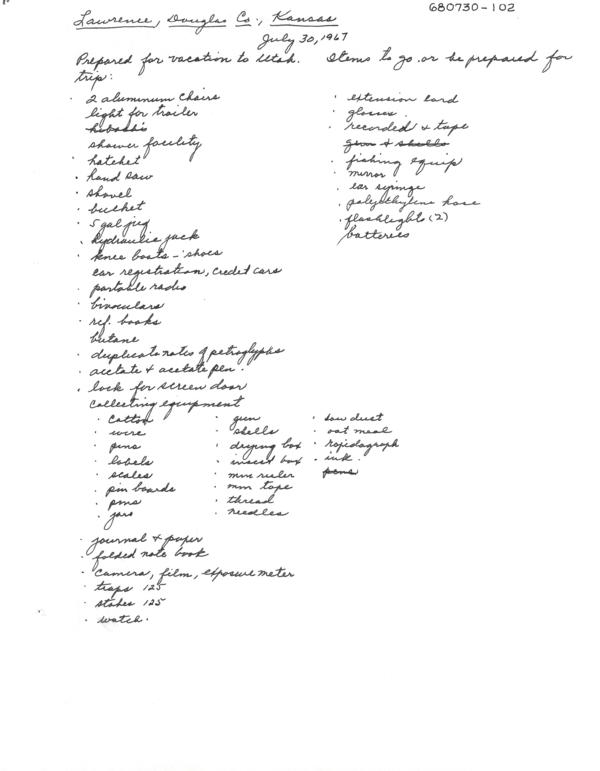 680730-102
Lawrence, Douglas Co., Kansas
July 30, 1967
Prepared for vacation to Utah. Items to go or be prepared for
trip:
· 2 aluminum chairs
light for trailer
hibachi
shower facility
· hatchet
· hand saw
· shovel
· bucket
· 5 gal jug
· hydraulic jack
· knee boots - shoes
car registration, credit cars
· portable radio
· binoculars
· ref. books
butane
· duplicate notes of petroglyphs
· acetate + acetate pen.
· lock for screen door
collecting equipment
· cotton
· wire
· pins
· labels
· scales
· pin boards
· pins
· jars
· gun
· shells
· drying box
· insect box
· mm ruler
· mm tape
· thread
· needles
· saw dust
· oat meal
· rapidograph
· ink.
pens
· journal + paper
· folded note book
· camera, film, exposure meter
· traps 125
· stakes 125
· watch.
· extension cord
· glasses
· recorded + tape
gun + shells
· fishing equip
· mirror
· ear syringe
· polyethylene hose
· flashlights (2)
batteries